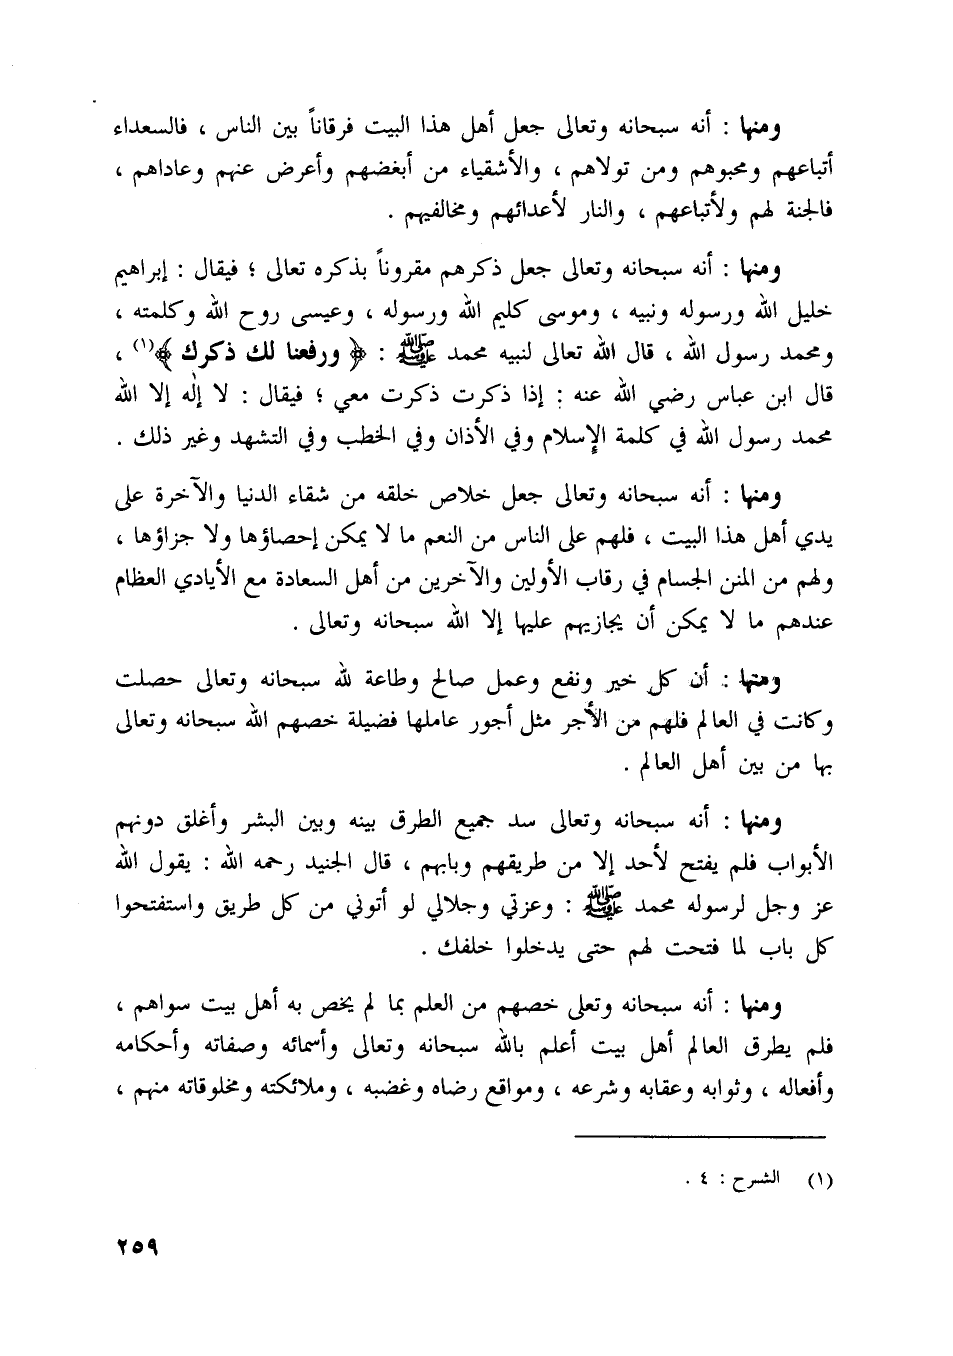 ومنها : أنه سبحانه وتعالى جعل أهل هذا البيت فرقاناً بين الناس ، فالسعداء
أتباعهم ومحبوهم ومن تولاهم ، والأشقياء من أبغضهم وأعرض عنهم وعاداهم ،
فالجنة لهم ولأتباعهم ، والنار لأعدائهم ومخالفيهم .
ومنها : أنه سبحانه وتعالى جعل ذكرهم مقروناً بذكره تعالى ؛ فيقال : إبراهيم
خليل الله ورسوله ونبيه ، وموسى كليم الله ورسوله ، وعيسى روح الله وكلمته ،
ومحمد رسول الله ، قال الله تعالى لنبيه محمد ﷺ : ﴿ ورفعنا لك ذكرك ﴾(١) ،
قال ابن عباس رضي الله عنه : إذا ذكرت ذكرت معي ؛ فيقال : لا إله إلا الله
محمد رسول الله في كلمة الإسلام وفي الأذان وفي الخطب وفي التشهد وغير ذلك .
ومنها : أنه سبحانه وتعالى جعل خلاص خلقه من شقاء الدنيا والآخرة على
يدي أهل هذا البيت ، فلهم على الناس من النعم ما لا يمكن إحصاؤها ولا جزاؤها ،
ولهم من المنن الجسام في رقاب الأولين والآخرين من أهل السعادة مع الأيادي العظام
عندهم ما لا يمكن أن يجازيهم عليها إلا الله سبحانه وتعالى .
ومنها : أن كل خير ونفع وعمل صالح وطاعة لله سبحانه وتعالى حصلت
وكانت في العالم فلهم من الأجر مثل أجور عاملها فضيلة خصهم الله سبحانه وتعالى
بها من بين أهل العالم .
ومنها : أنه سبحانه وتعالى سد جميع الطرق بينه وبين البشر وأغلق دونهم
الأبواب فلم يفتح لأحد إلا من طريقهم وبابهم ، قال الجنيد رحمه الله : يقول الله
عز وجل لرسوله محمد ﷺ : وعزتي وجلالي لو أتوني من كل طريق واستفتحوا
كل باب لما فتحت لهم حتى يدخلوا خلفك .
ومنها : أنه سبحانه وتعلى خصهم من العلم بما لم يخص به أهل بيت سواهم ،
فلم يطرق العالم أهل بيت أعلم بالله سبحانه وتعالى وأسمائه وصفاته وأحكامه
وأفعاله ، وثوابه وعقابه وشرعه ، ومواقع رضاه وغضبه ، وملائكته ومخلوقاته منهم ،
(١) الشرح : ٤ .
٢٥٩